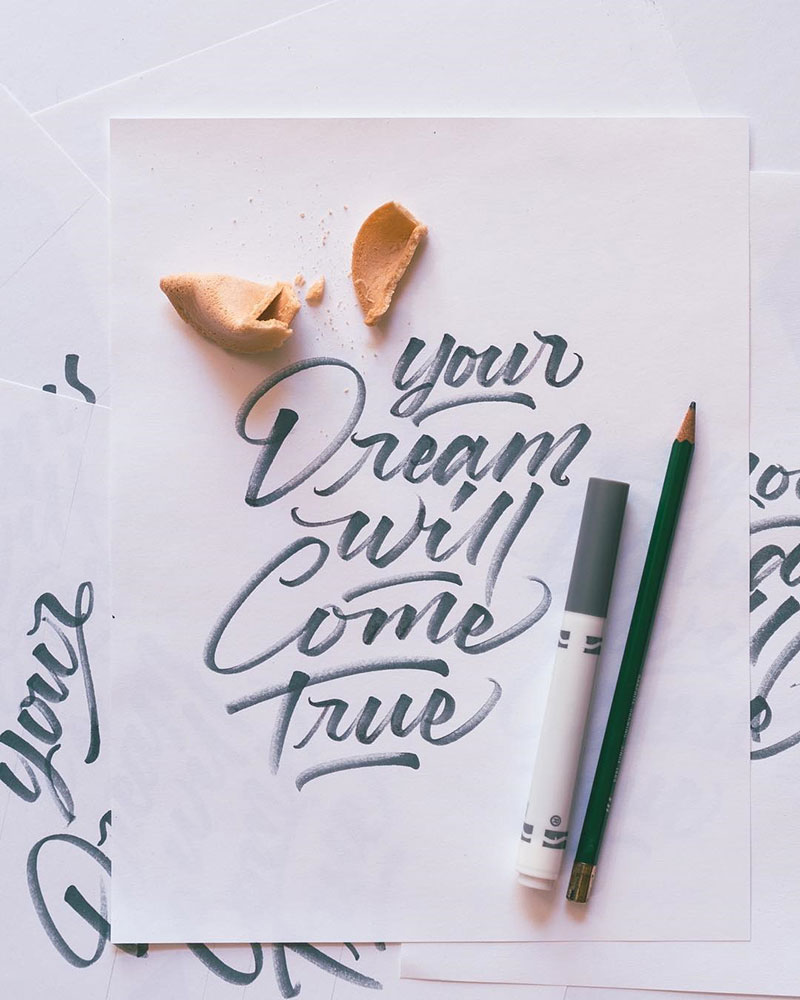 your
Dream
will
Come
True
your